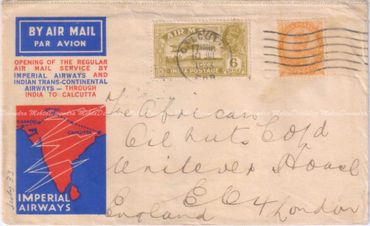 BY AIR MAIL
PAR AVION
OPENING OF THE REGULAR
AIR MAIL SERVICE BY
IMPERIAL AIRWAYS AND
INDIAN TRANS-CONTINENTAL
AIRWAYS - THROUGH
INDIA TO CALCUTTA
KARACHI
CALCUTTA
IMPERIAL
AIRWAYS
AIR MAIL
INDIA POSTAGE
6
The African
Oil nuts Co Ld
Unilever House
E C 4 London
England
July 33